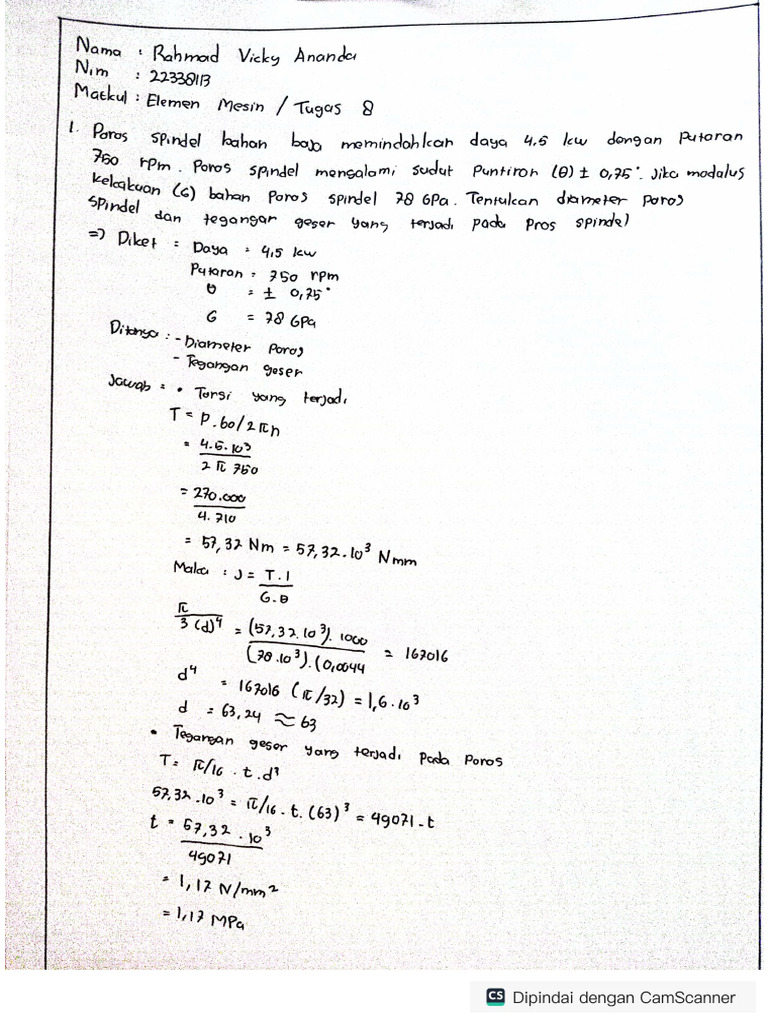 Nama : Rahmad Vicky Ananda
Nim : 22338113
Matkul : Elemen Mesin / Tugas 8
1. Poros spindel bahan baja memindahkan daya 4,5 kw dengan Putaran
750 rpm. Poros spindel mengalami sudut Puntiran (θ) ± 0,75°. Jika modalus
kekakuan (G) bahan Poros spindel 78 GPa. Tentulcan diameter poros
spindel dan tegangar geser yang terjadi pada Pros spindel
=> Diket : Daya : 4,5 kw
Putaran : 750 rpm
θ = ± 0,75°
G = 78 GPa
Ditanya : - Diameter Poros
- Tegangan geser
Jawab : • Torsi yang terjadi
T = P.60/2πn
= 4.5.10³
2 π 750
= 270.000
4.710
= 57,32 Nm = 57,32.10³ Nmm
Maka : J = T.l
G.θ
π
3 (d)⁴ = (57,32.10³). 1000 = 167016
(78.10³).(0,0044
d⁴ = 167016 (π/32) = 1,6.10³
d = 63,24 ≈ 63
• Tegangan geser yang terjadi pada Poros
T = π/16 . t.d³
57,32.10³ = π/16.t.(63)³ = 49071.t
t = 57,32.10³
49071
= 1,17 N/mm²
= 1,17 MPa
CS Dipindai dengan CamScanner